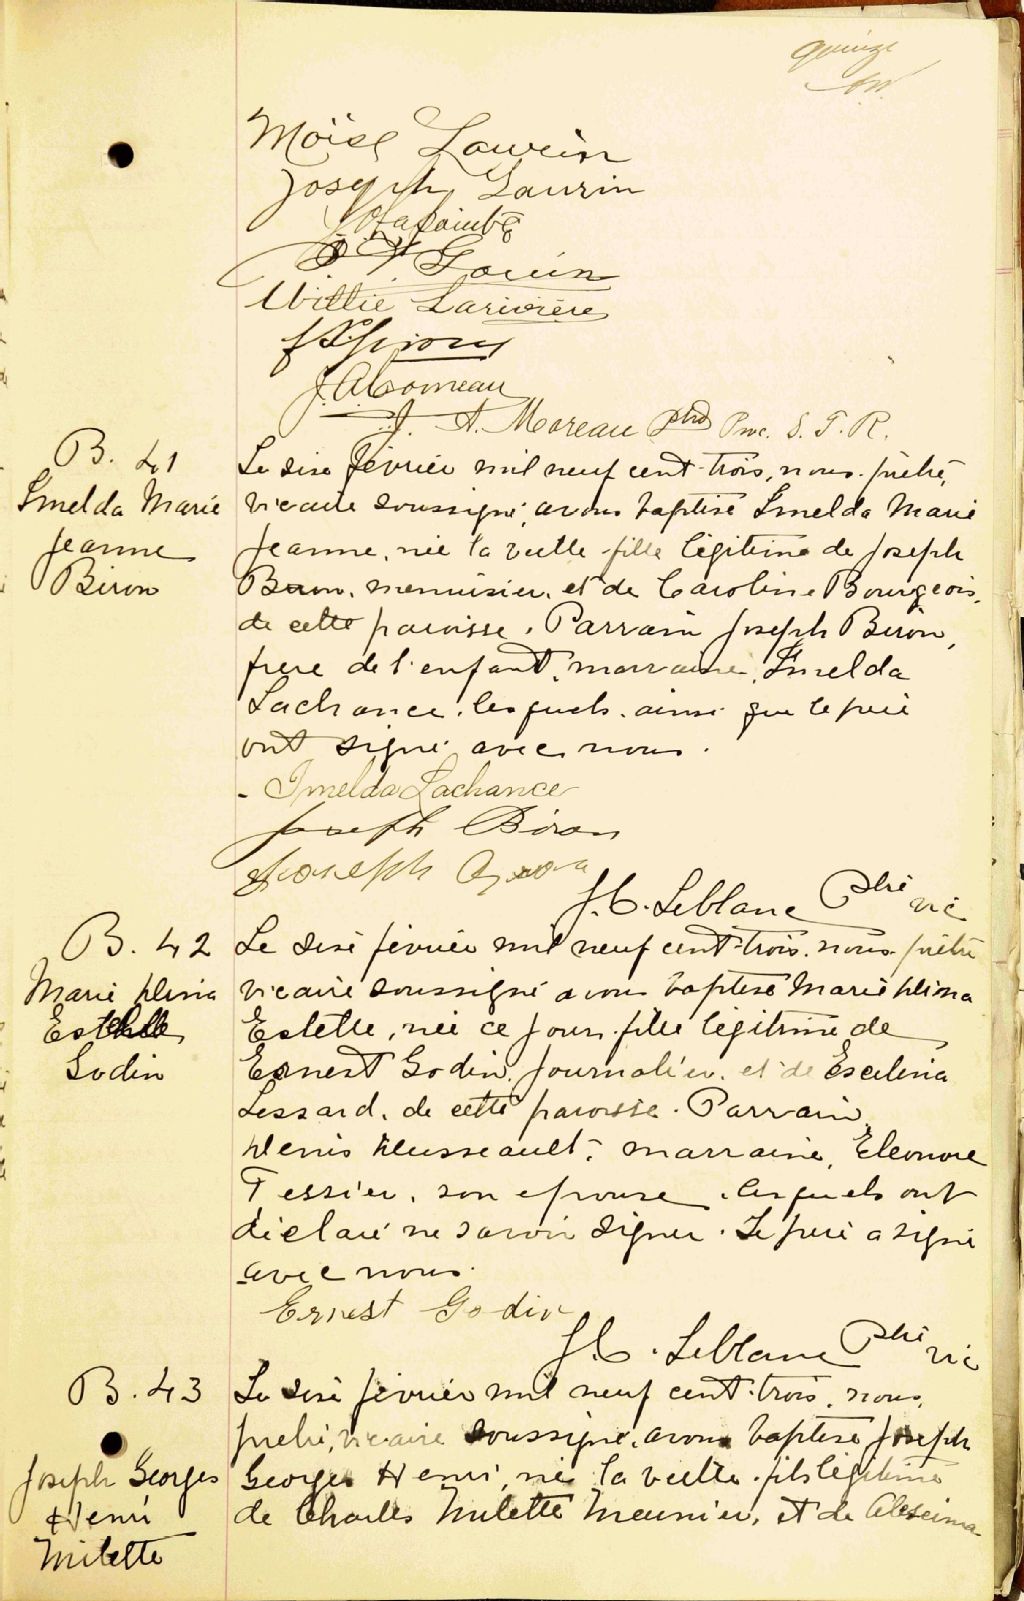 quinze
Moïse Laurin
Joseph Laurin
Gouin
Willie Larivière
J. A. Comeau
J. A. Moreau ptre Proc. S. T. R.
B. 41
Imelda Marie
Jeanne
Biron
Le six février mil neuf cent trois, nous, prêtre,
vicaire soussigné, avons baptisé Imelda Marie
Jeanne, née la veille fille légitime de Joseph
Biron, menuisier, et de Caroline Bourgeois,
de cette paroisse. Parrain Joseph Biron,
frère de l'enfant, marraine, Imelda
Lachance, lesquels, ainsi que le père
ont signé avec nous.
Imelda Lachance
Joseph Biron
Joseph
J. C. Leblanc Ptre vic
B. 42
Marie
Estelle
Godin
Le six février mil neuf cent trois, nous, prêtre
vicaire soussigné avons baptisé Marie
Estelle, née ce jour, fille légitime de
Ernest Godin, journalier, et de
Lessard, de cette paroisse. Parrain,
marraine, Eléonore
Tessier, son épouse, lesquels ont
déclaré ne savoir signer. Le père a signé
avec nous.
Ernest Godin
J. C. Leblanc Ptre vic
B. 43
Joseph Georges
Henri
Milette
Le six février mil neuf cent trois, nous,
prêtre, vicaire soussigné, avons baptisé Joseph
Georges Henri, né la veille, fils légitime
de Charles Milette Meunier, et de